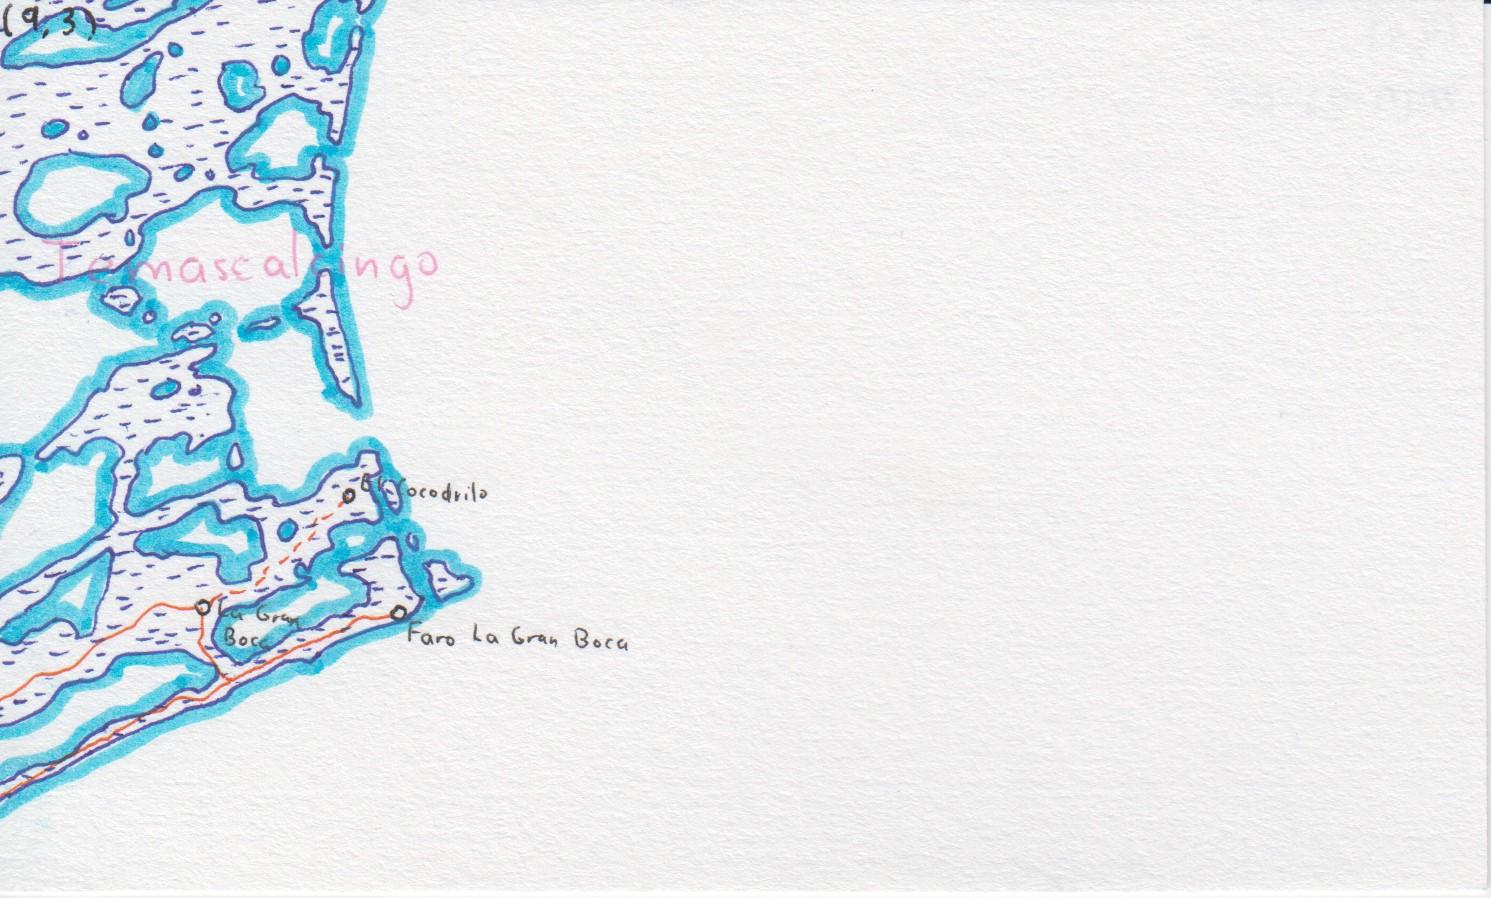 (9,3)
Tamascalcingo
El Cocodrilo
La Gran
Boca
Faro La Gran Boca